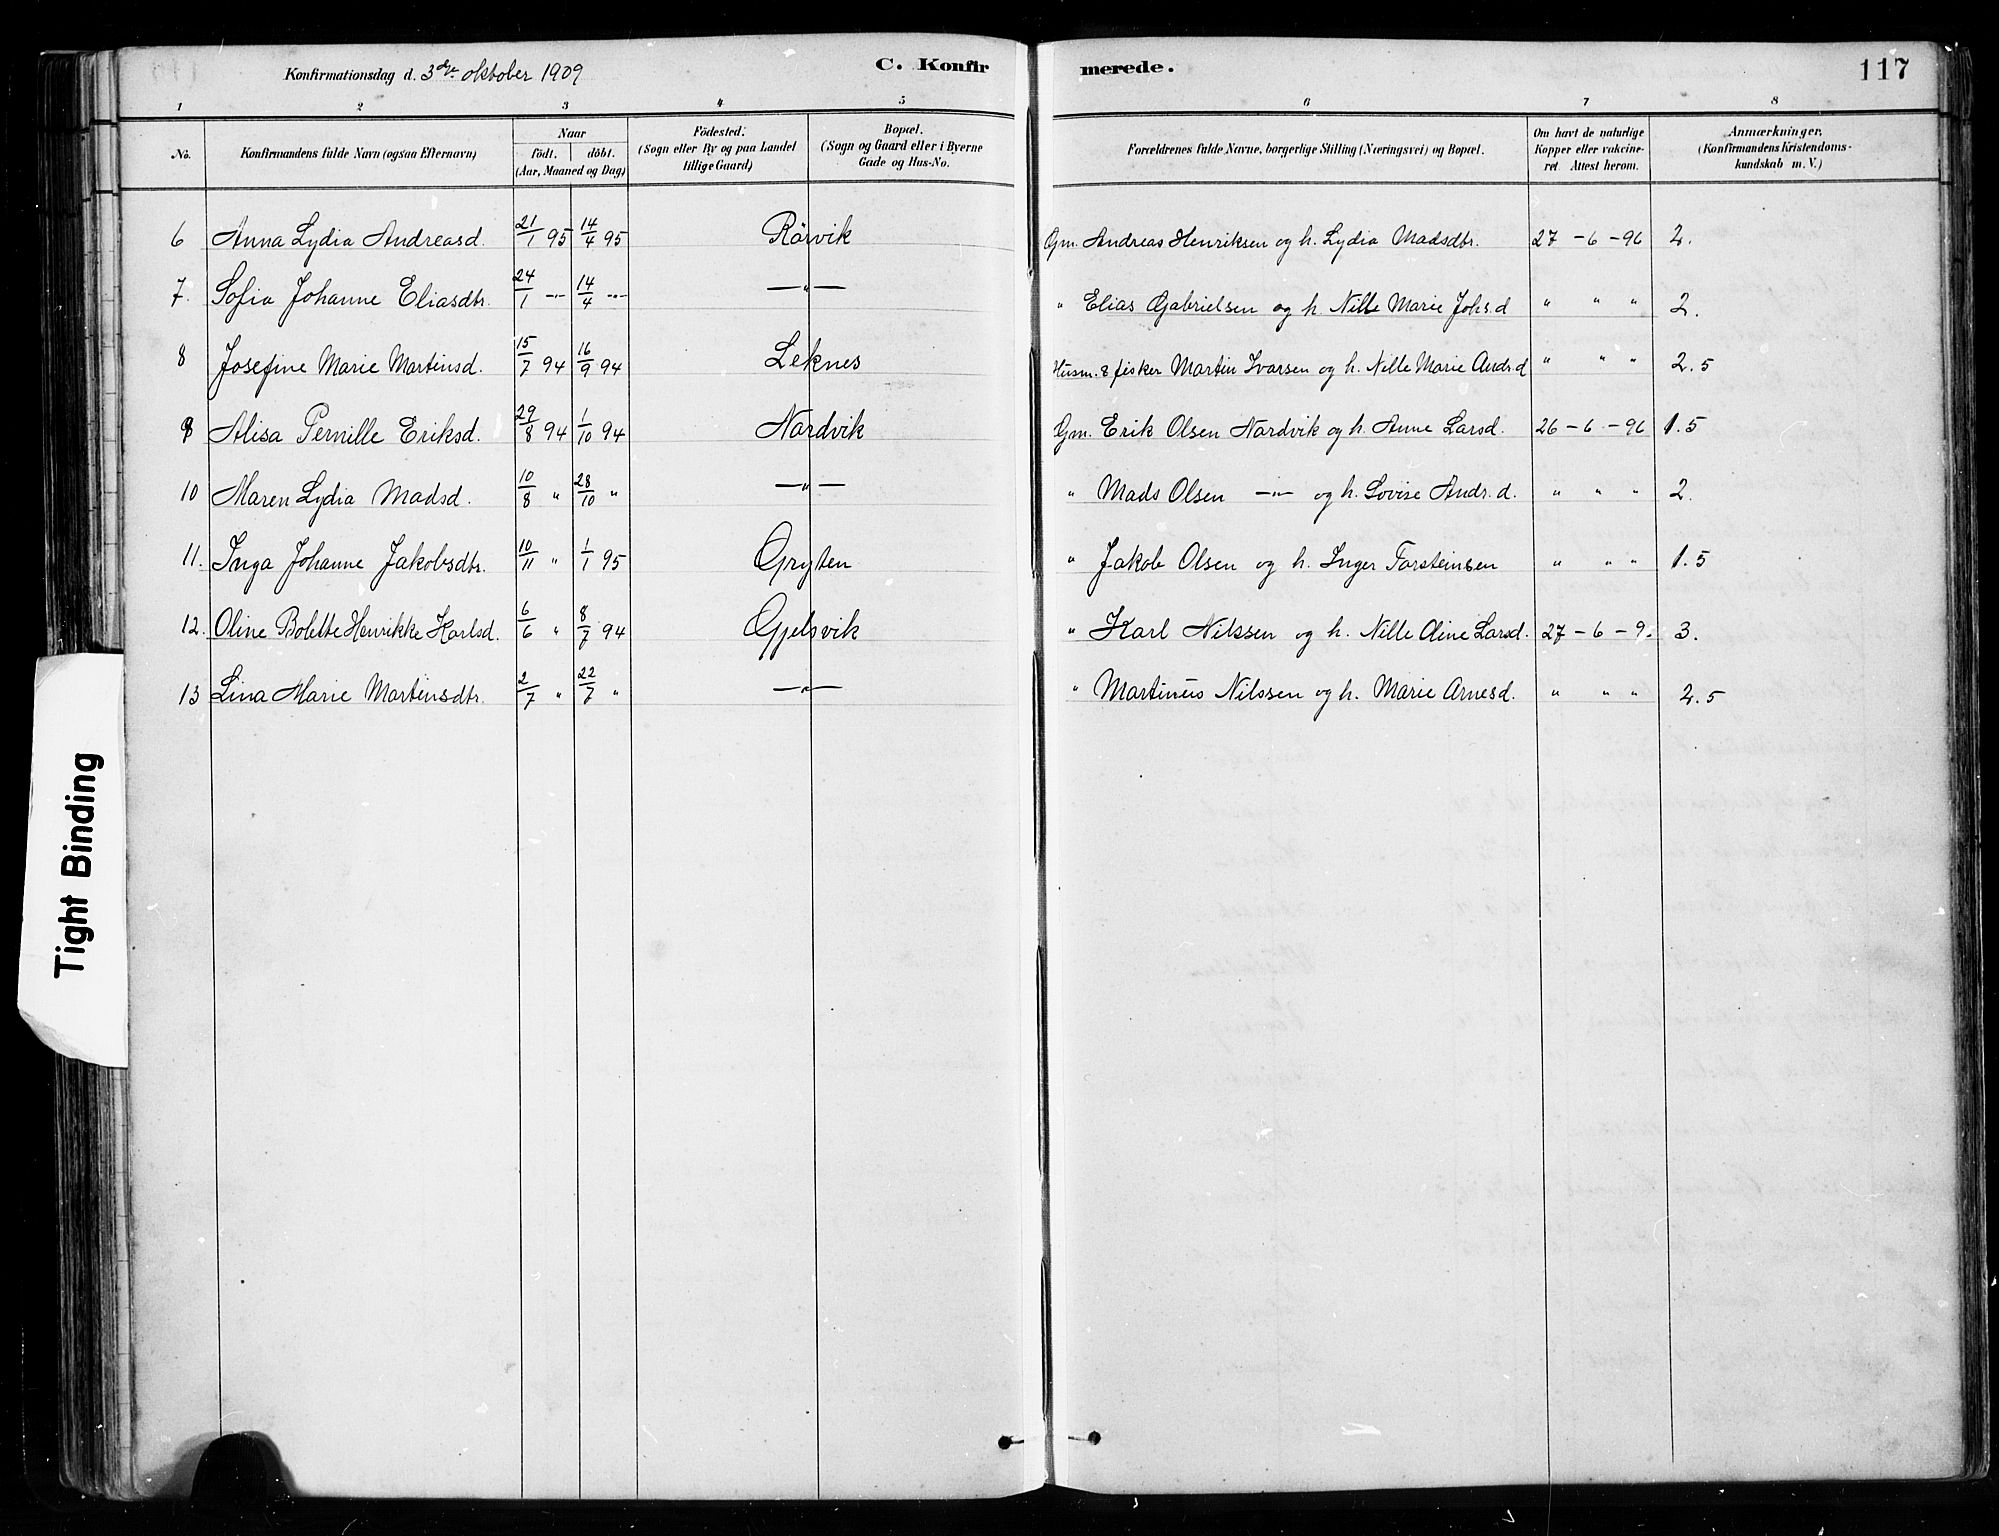 Konfirmationsdag d. 3die oktober 1909 C. Konfirmerede. 117
1 2 3 4 5 6 7 8
No. Konfirmandens fulde Navn (ogsaa Efternavn) Naar født. døbt. (Aar, Maaned og Dag) Fødested. (Sogn eller By og paa Landet tillige Gaard) Bopæl. (Sogn og Gaard eller i Byerne Gade og Hus-No. Forældrenes fulde Navne, borgerlige Stilling (Næringsvei) og Bopæl. Om havt de naturlige Kopper eller vakcineret Attest herom. Anmærkninger. (Konfirmandens Kristendomskundskab m. V.)
6 Anna Lydia Andreasd. 21/1 95 14/4 95 Rørvik Gm. Andreas Henriksen og h. Lydia Madsdtr. 27 - 6 - 96 2.
7. Sofia Johanne Eliasdtr. 24/1 -"- 14/4 -"- -"- " Elias Gabrielsen og h. Nille Marie Johs.d " " " 2.
8 Josefine Marie Martinsd. 15/7 94 16/9 94 Leknes Husm. & fisker Martin Ivarsen og h. Nille Marie Andr.d " " " 2.5
9 Alisa Pernille Eriksd. 29/8 94 1/10 94 Nordvik Gm. Erik Olsen Nordvik og h. Anne Larsd. 26 - 6 - 96 1.5
10 Maren Lydia Madsd. 10/8 " 28/10 " -"- " Mads Olsen -"- og h. Lovise Andr.d. " " " 2.
11. Inga Johanne Jakobsdtr. 10/11 " 1/1 95 Gryten " Jakob Olsen og h. Inger Torsteinsen " " " 1.5
12. Oline Bolette Henrikke Karlsd. 6/6 " 8/7 94 Gjelsvik " Karl Nilssen og h. Nille Oline Larsd. 27 - 6 - 9. 3.
13 Lina Marie Martinsdtr. 2/7 " 22/7 " -"- " Martinus Nilssen og h. Marie Arnesd. " " " 2.5
Tight Binding